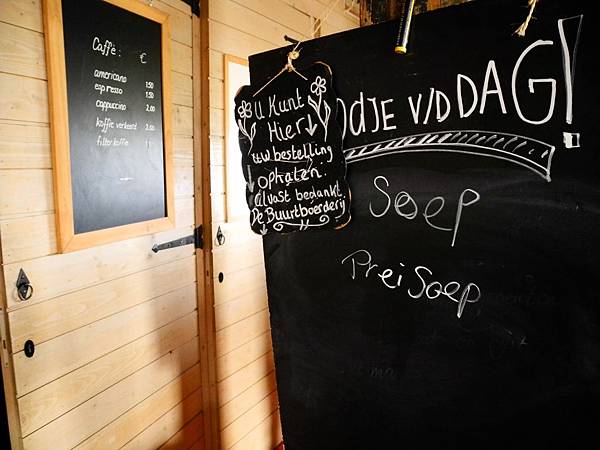 Caffè: €
americano 1.50
espresso 1.50
cappuccino 2.00
koffie verkeerd 2.00
filterkoffie
U kunt
Hier
uw bestelling
ophalen.
Alvast bedankt.
De Buurtboerderij
DJE V/D DAG!
Soep
Prei Soep